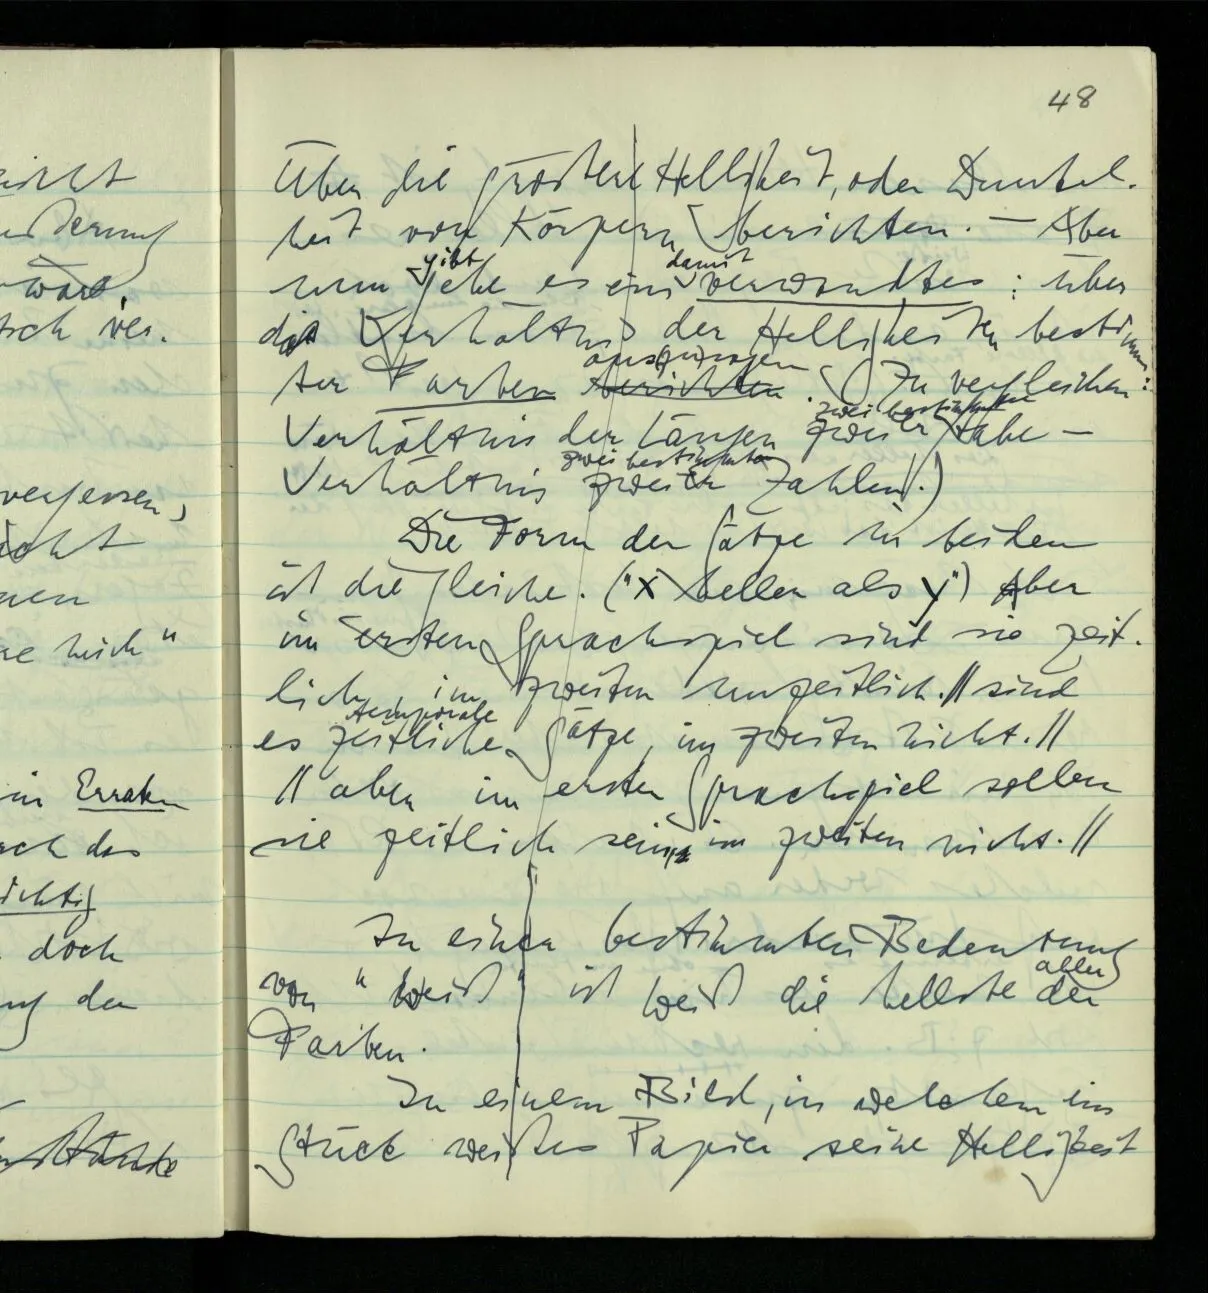 48
icht
über die größere Helligkeit, oder Dunkel-
heit von Körpern berichten. — Aber
nun gibt es ein damit verwandtes: über
wäre,
das Verhältnis der Helligkeiten bestimm-
ter Farben aussagen berichten. (Zu vergleichen:
zwei bestimmten
Verhältnis der Längen zweier Stäbe –
zwei bestimmten
Verhältnis zweier Zahlen.)
vergessen,
Die Form der Sätze in beiden
ist die gleiche. ("X heller als Y") Aber
im ersten Sprachspiel sind sie zeit-
lich, im zweiten unzeitlich. // sind
temporale
es zeitliche Sätze, im zweiten nicht. //
in Erraten
// aber im ersten Sprachspiel sollen
sie zeitlich sein, im zweiten nicht. //
richtig
doch
In einer bestimmten Bedeutung
aller
von "weiß" ist weiß die hellste der
Farben.
In einem Bild, in welchem ein
Stück weißes Papier seine Helligkeit